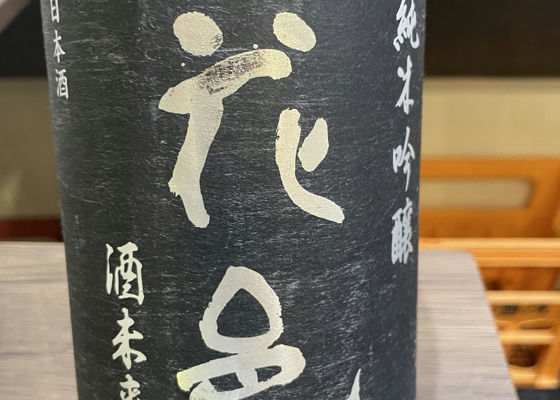 純米吟醸
花邑
酒未来
日本酒